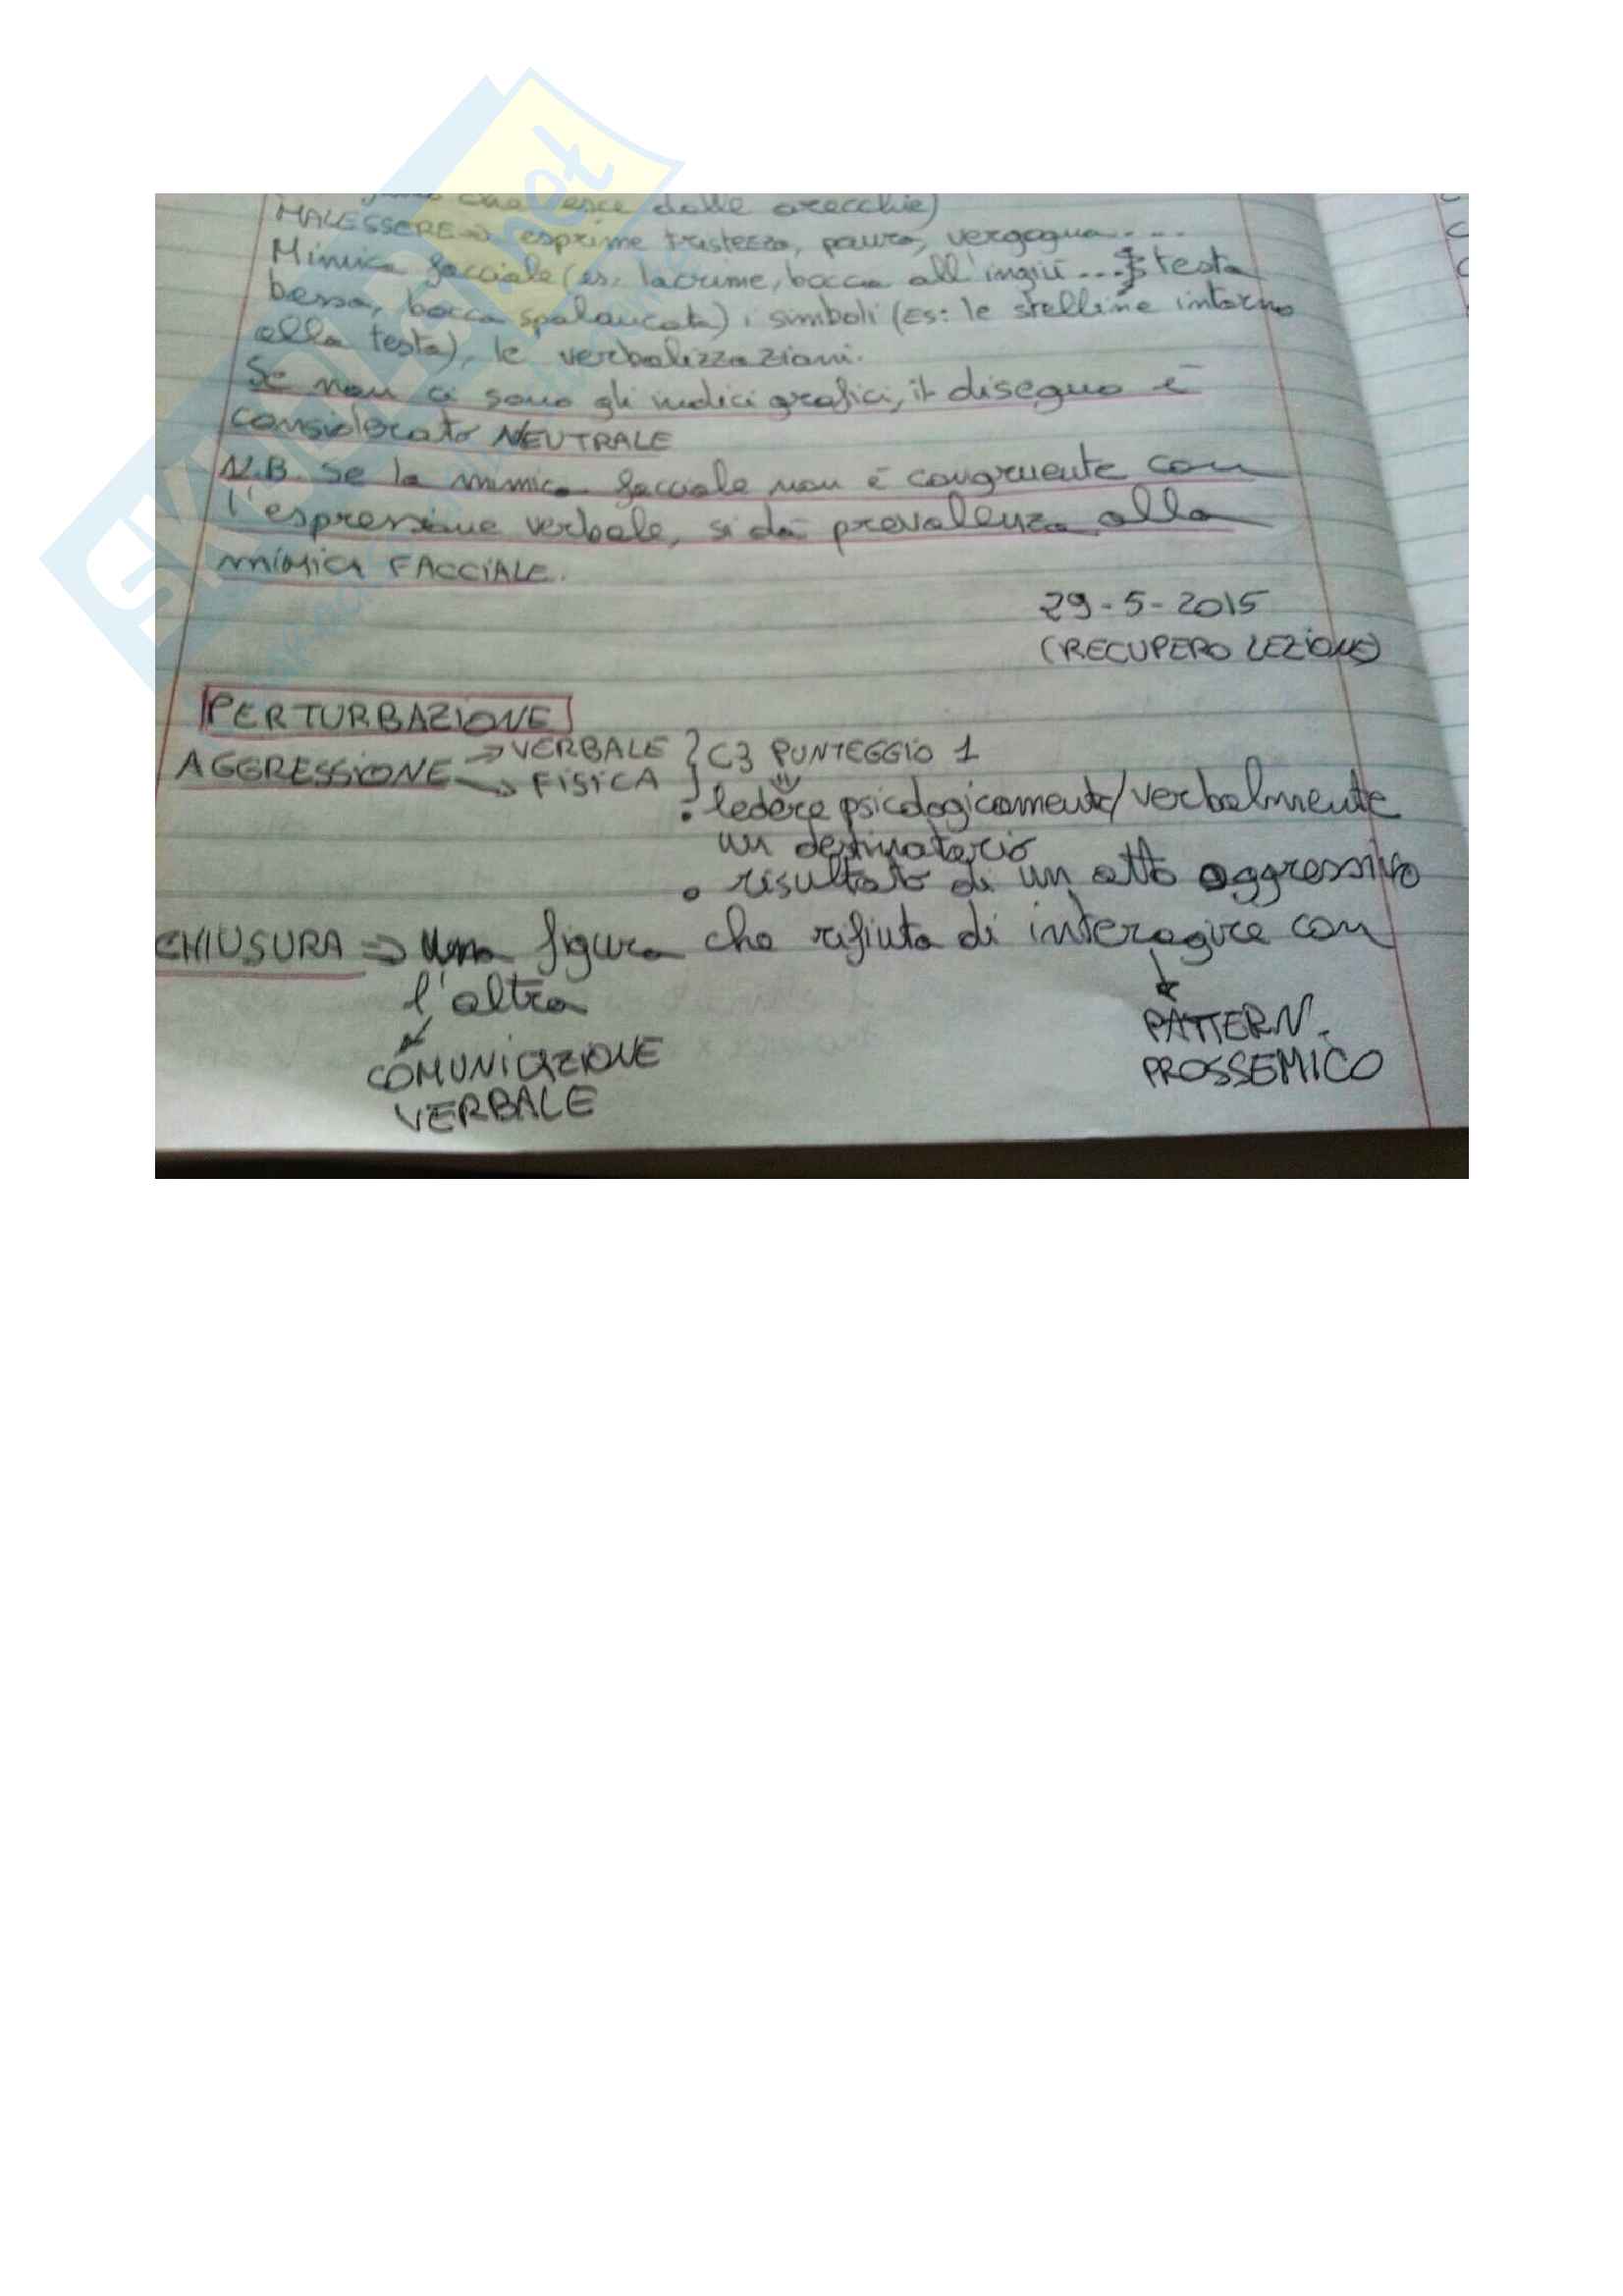 che esce dalle orecchie)
MALESSERE → esprime tristezza, paura, vergogna....
Mimica facciale (es. lacrime, bocca all'ingiù ... testa
bassa, bocca spalancata) i simboli (Es: le stelline intorno
alla testa), le verbalizzazioni.
Se non ci sono gli indici grafici, il disegno è
considerato NEUTRALE
N.B. Se la mimica facciale non è congruente con
l'espressione verbale, si dà prevalenza alla
mimica FACCIALE.
29-5-2015
(RECUPERO LEZIONE)
PERTURBAZIONE
AGGRESSIONE → VERBALE } C3 PUNTEGGIO 1
→ FISICA
• ledere psicologicamente/verbalmente
un destinatario
• risultato di un atto aggressivo
CHIUSURA ⇒ una figura che rifiuta di interagire con
l'altra
PATTERN
PROSSEMICO
COMUNICAZIONE
VERBALE
SKUOLA.net